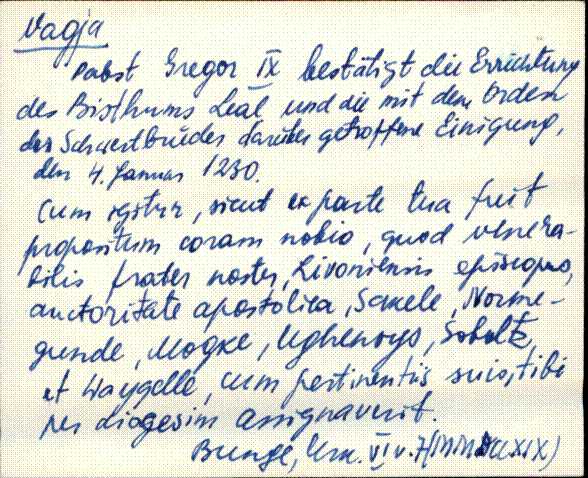 Vagja
Pabst Gregor IX bestätigt die Errichtung
des Bisthums Leal und die mit dem Orden
der Schwertbrüder darüber getroffene Einigung,
den 4. Januar 1230.
Cum igitur, sicut ex parte tua fuit
propositum coram nobis, quod venera-
bilis frater noster, Livoniensis episcopus,
auctoritate apostolica, Sakele, Norme-
gunde, Mogke, Ughenoys, Soboltz,
et Waygelle, cum pertinentiis suis, tibi
pro diogesim assignaverit.
Bunge, Urk. VI v. 7